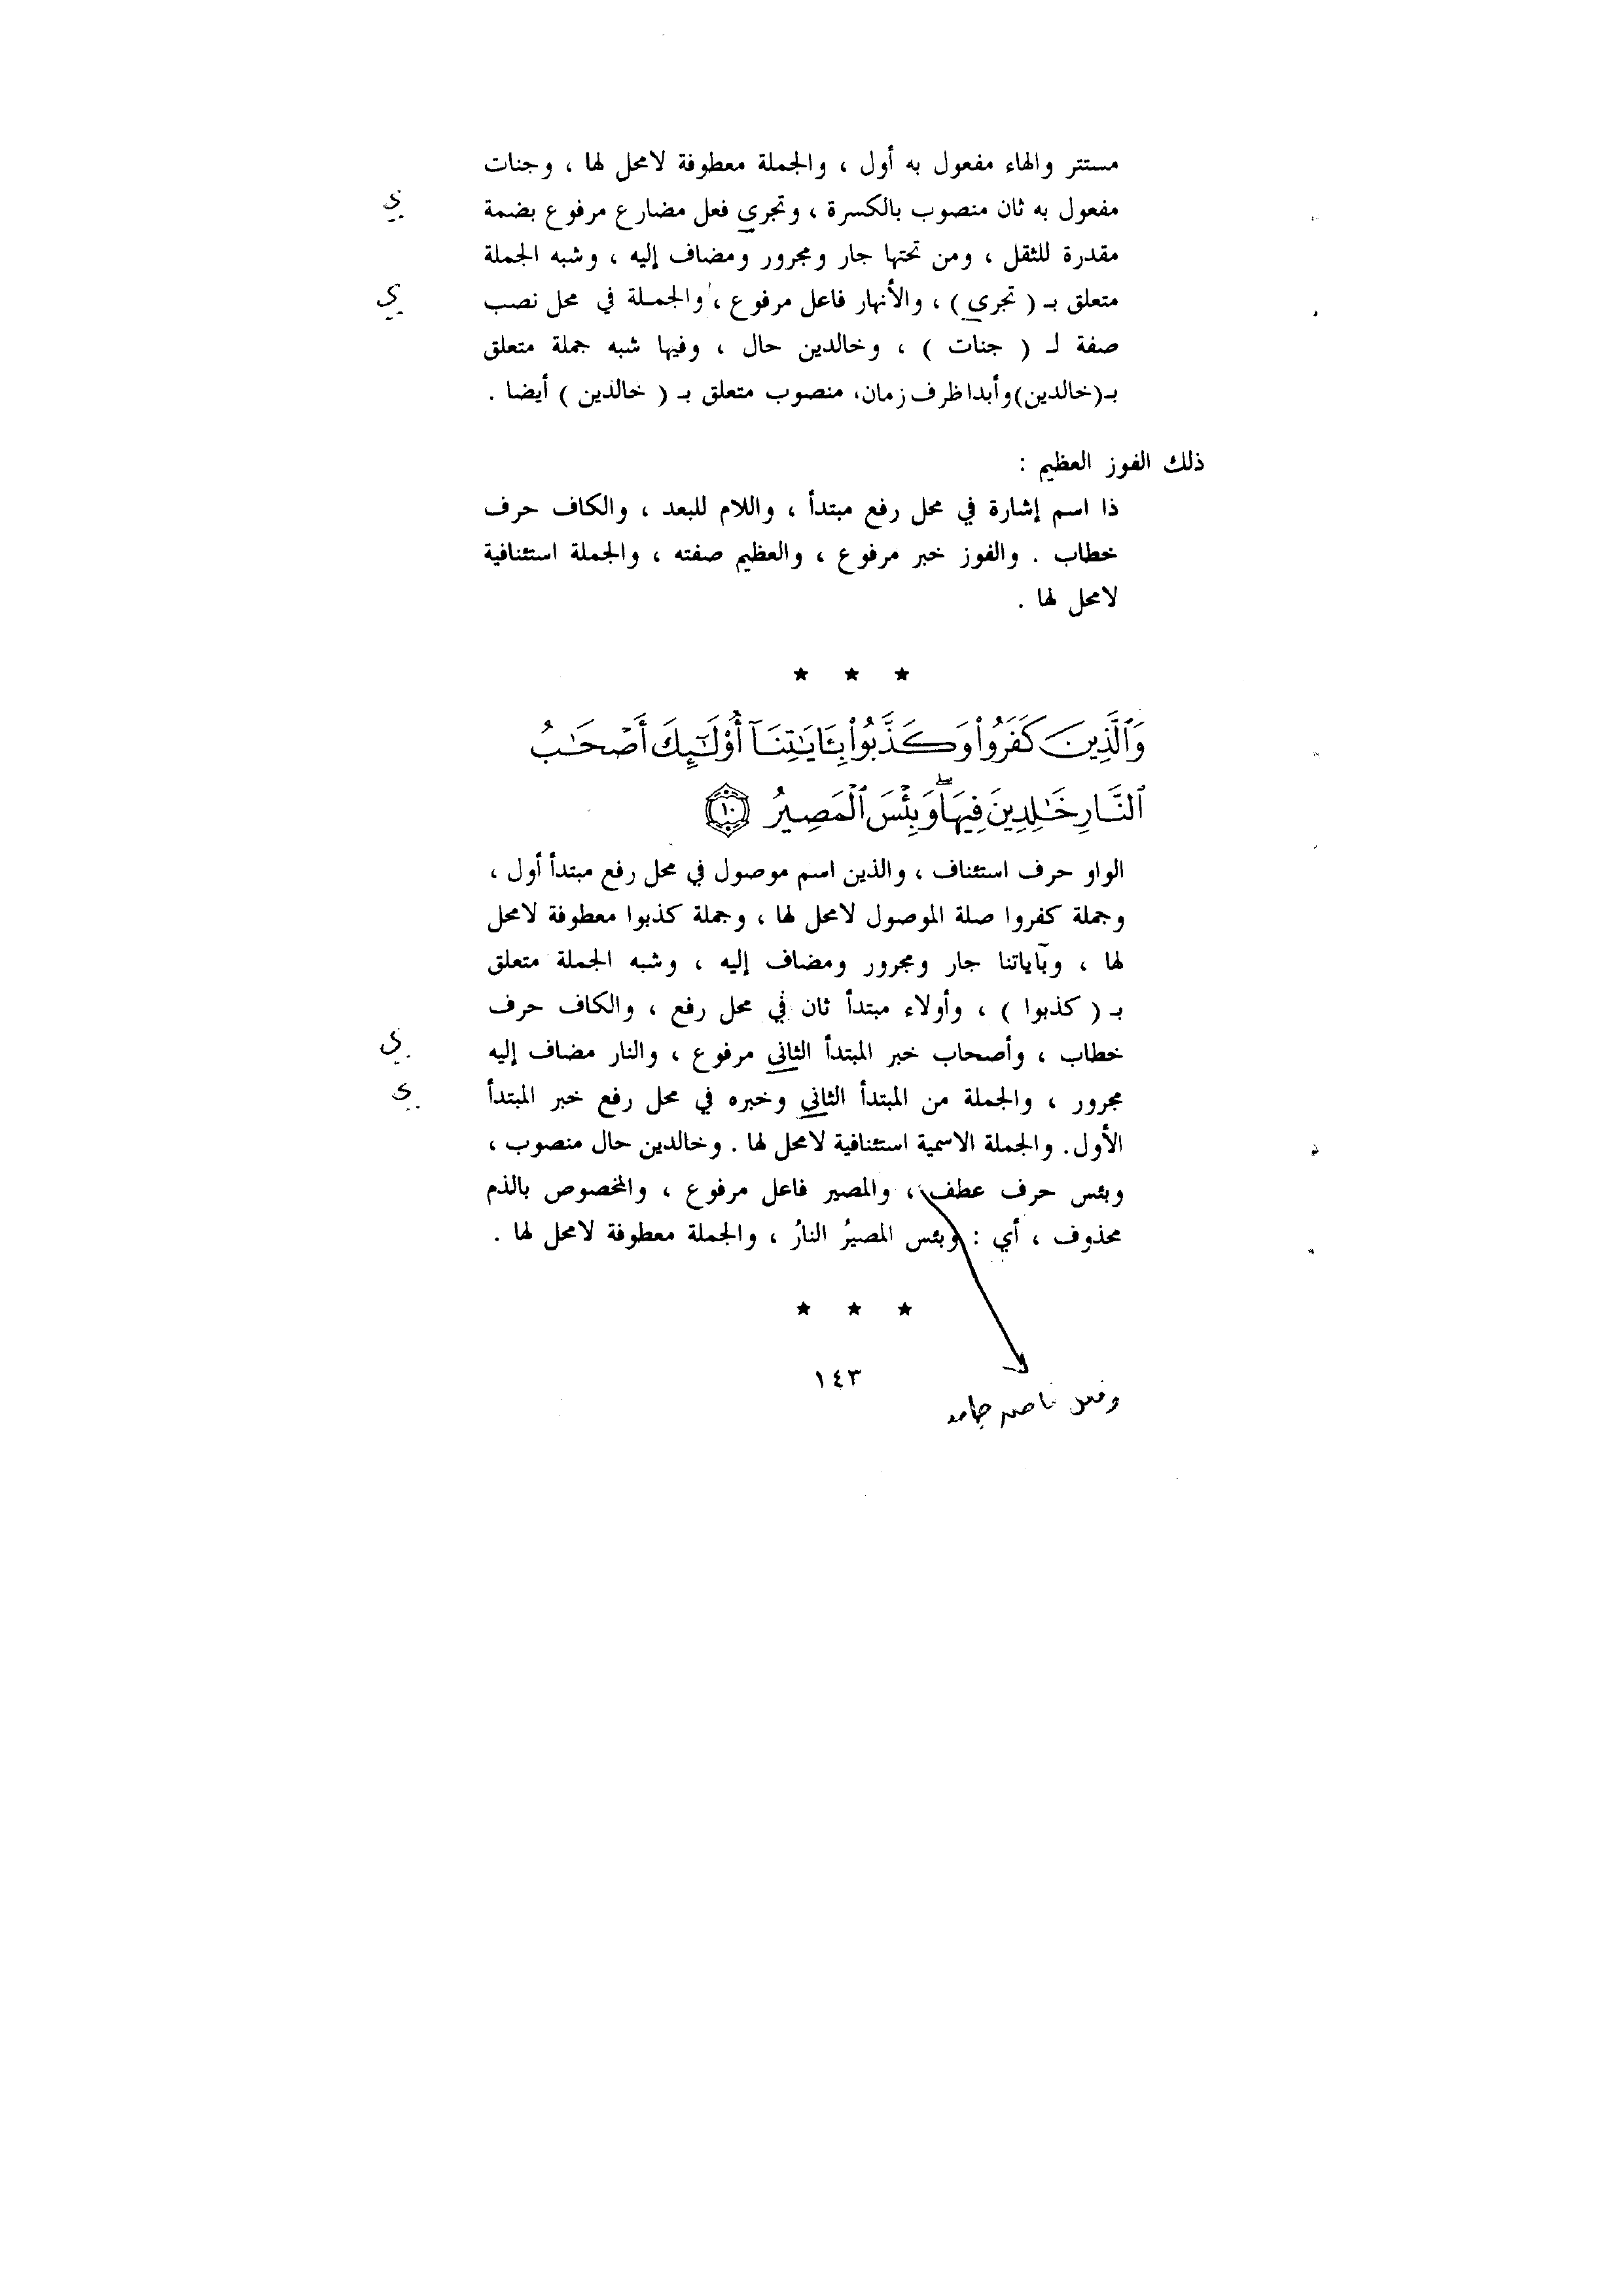 مستتر والهاء مفعول به أول ، والجملة معطوفة لامحل لها ، وجنات
مفعول به ثان منصوب بالكسرة ، وتجري فعل مضارع مرفوع بضمة
ي
مقدرة للثقل ، ومن تحتها جار ومجرور ومضاف إليه ، وشبه الجملة
متعلق بـ ( تجري ) ، والأنهار فاعل مرفوع ، والجملة في محل نصب
ي
صفة لـ ( جنات ) ، وخالدين حال ، وفيها شبه جملة متعلق
بـ(خالدين)وأبداظرف زمان، منصوب متعلق بـ ( خالدين ) أيضا .
ذلك الفوز العظيم :
ذا اسم إشارة في محل رفع مبتدأ ، واللام للبعد ، والكاف حرف
خطاب . والفوز خبر مرفوع ، والعظيم صفته ، والجملة استئنافية
لامحل لها .
★ ★ ★
وَٱلَّذِينَ كَفَرُواْ وَكَذَّبُواْ بِـَٔايَـٰتِنَآ أُوْلَـٰٓئِكَ أَصۡحَـٰبُ
ٱلنَّارِ خَـٰلِدِينَ فِيهَاۖ وَبِئۡسَ ٱلۡمَصِيرُ ١٠
الواو حرف استئناف ، والذين اسم موصول في محل رفع مبتدأ أول ،
وجملة كفروا صلة الموصول لامحل لها ، وجملة كذبوا معطوفة لامحل
لها ، وبآياتنا جار ومجرور ومضاف إليه ، وشبه الجملة متعلق
بـ ( كذبوا ) ، وأولاء مبتدأ ثان في محل رفع ، والكاف حرف
خطاب ، وأصحاب خبر المبتدأ الثاني مرفوع ، والنار مضاف إليه
ي
مجرور ، والجملة من المبتدأ الثاني وخبره في محل رفع خبر المبتدأ
ي
الأول. والجملة الاسمية استئنافية لامحل لها . وخالدين حال منصوب ،
وبئس حرف عطف ، والمصير فاعل مرفوع ، والمخصوص بالذم
محذوف ، أي : وبئس المصيرُ النارُ ، والجملة معطوفة لامحل لها .
★ ★ ★
١٤٣
وفعل ماض جامد